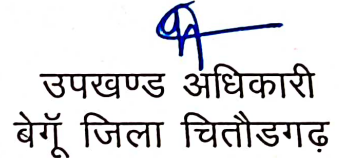 उपखण्ड अधिकारी
बेगूॅ जिला चितौडगढ़